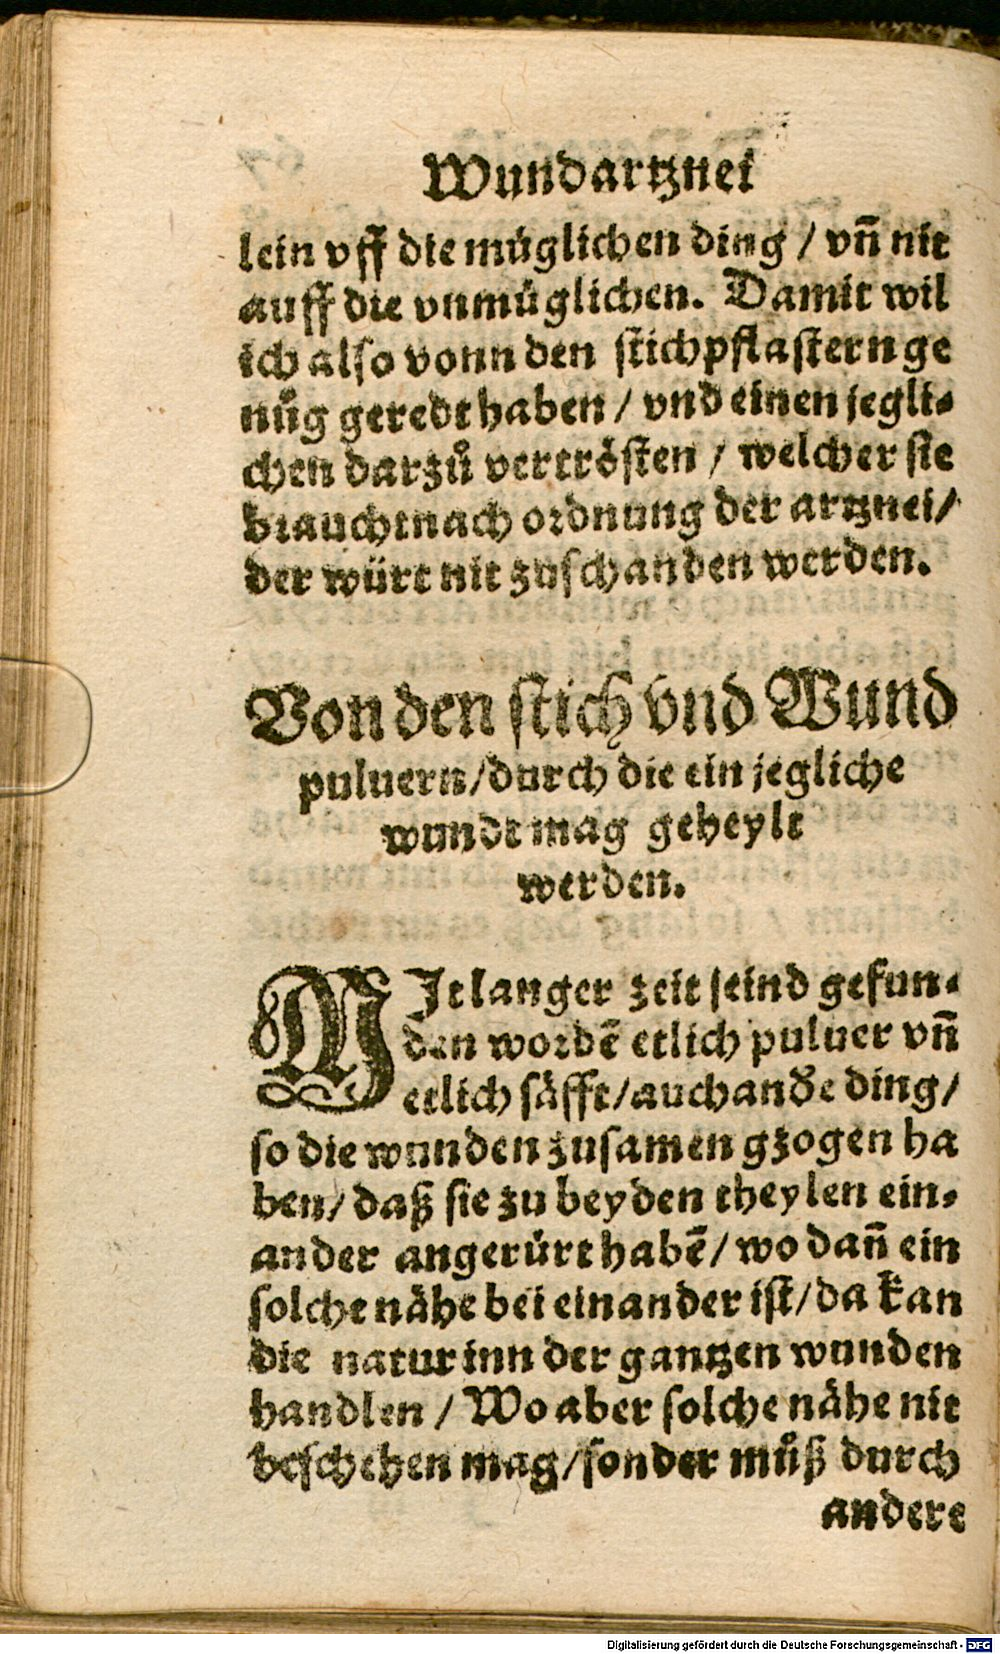 Wundartznei
lein vff die müglichen ding / vñ nit
auff die vnmüglichen. Damit wil
ich also vonn den stichpflastern ge
nůg geredt haben / vnd einen jegli⸗
chen darzů vertrösten / welcher sie
braucht nach ordnung der artznei/
der würt nit zuschanden werden.
Von den stich vnd Wund
puluern/durch die ein jegliche
wundt mag geheylt
werden.
MIt langer zeit seind gefun⸗
den wordẽ etlich puluer vñ
etlich säfft/auch anđe ding/
so die wunden zusamen gzogen ha
ben/ daß sie zu beyden theylen ein⸗
ander angerürt habẽ/ wo dañ ein
solche nähe bei einander ist/da kan
die natur inn der gantzen wunden
handlen / Wo aber solche nähe nit
beschehen mag/sonder můß durch
andere
Digitalisierung gefördert durch die Deutsche Forschungsgemeinschaft - DFG